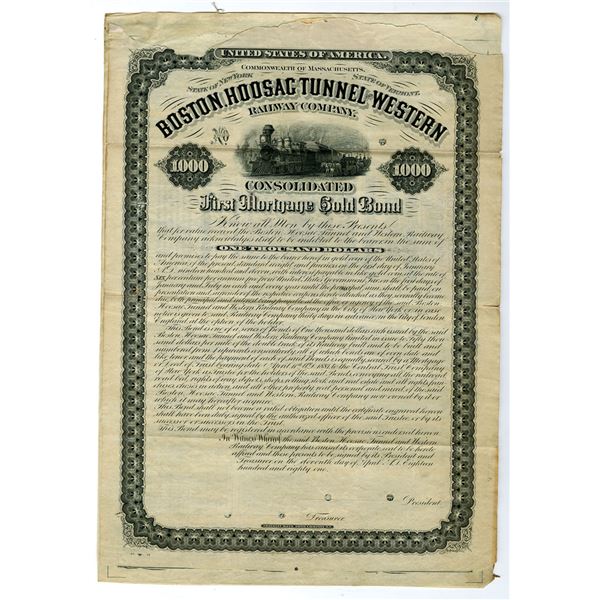 UNITED STATES OF AMERICA.
COMMONWEALTH OF MASSACHUSETTS.
STATE OF NEW YORK STATE OF VERMONT.
BOSTON, HOOSAC TUNNEL & WESTERN
RAILWAY COMPANY.
No
1000 1000
CONSOLIDATED
First Mortgage Gold Bond
Know all Men by these Presents
that for value received the Boston Hoosac Tunnel and Western Railway
Company acknowledges itself to be indebted to the bearer in the sum of
ONE THOUSAND DOLLARS
and promises to pay the same to the bearer hereof in gold coin of the United States of
America of the present standard weight and fineness on the first day of January
A.D. nineteen hundred and eleven, with interest payable in like gold coin at the rate of
six per centum per annum free from United States Government Tax on the first days of
January and July in each and every year until the principal sum shall be paid on
presentation and surrender of the respective coupons hereto attached as they severally become
due, both principal and interest being payable at the office or agency of the said Boston
Hoosac Tunnel and Western Railway Company in the City of New York or in case
notice is given to said Railway Company thirty days in advance, in the city of London
England at the option of the holder.
This Bond is one of a series of Bonds of One thousand dollars each issued by the said
Boston Hoosac Tunnel and Western Railway Company limited in issue to fifty thou
sand dollars per mile of the double track of its Railway built and to be built and
numbered from 1 upwards consecutively all of which bonds are of even date and
like tenor and the payment of each of said Bonds is equally secured by a Mortgage
or Deed of Trust bearing date April 11th 1881 to the Central Trust Company
of New York as Trustee for the holders of the said Bonds conveying all the railway
road bed rights of way depots shops rolling stock and real estate and all rights fran
chises choses in action, and all other property real personal and mixed of the said
Boston Hoosac Tunnel and Western Railway Company now owned by it or
which it may hereafter acquire.
This Bond shall not become a valid obligation until the certificate engraved hereon
shall have been duly signed by the authorized officer of the said Trustee or by its
successor or successors in the Trust.
This Bond may be registered in accordance with the provisions endorsed hereon.
In Witness Whereof the said Boston Hoosac Tunnel and Western
Railway Company has caused its corporate seal to be hereto
affixed and these presents to be signed by its President and
Treasurer on the eleventh day of April A.D. Eighteen
hundred and eighty one.
President
Treasurer
AMERICAN BANK NOTE COMPANY N.Y.